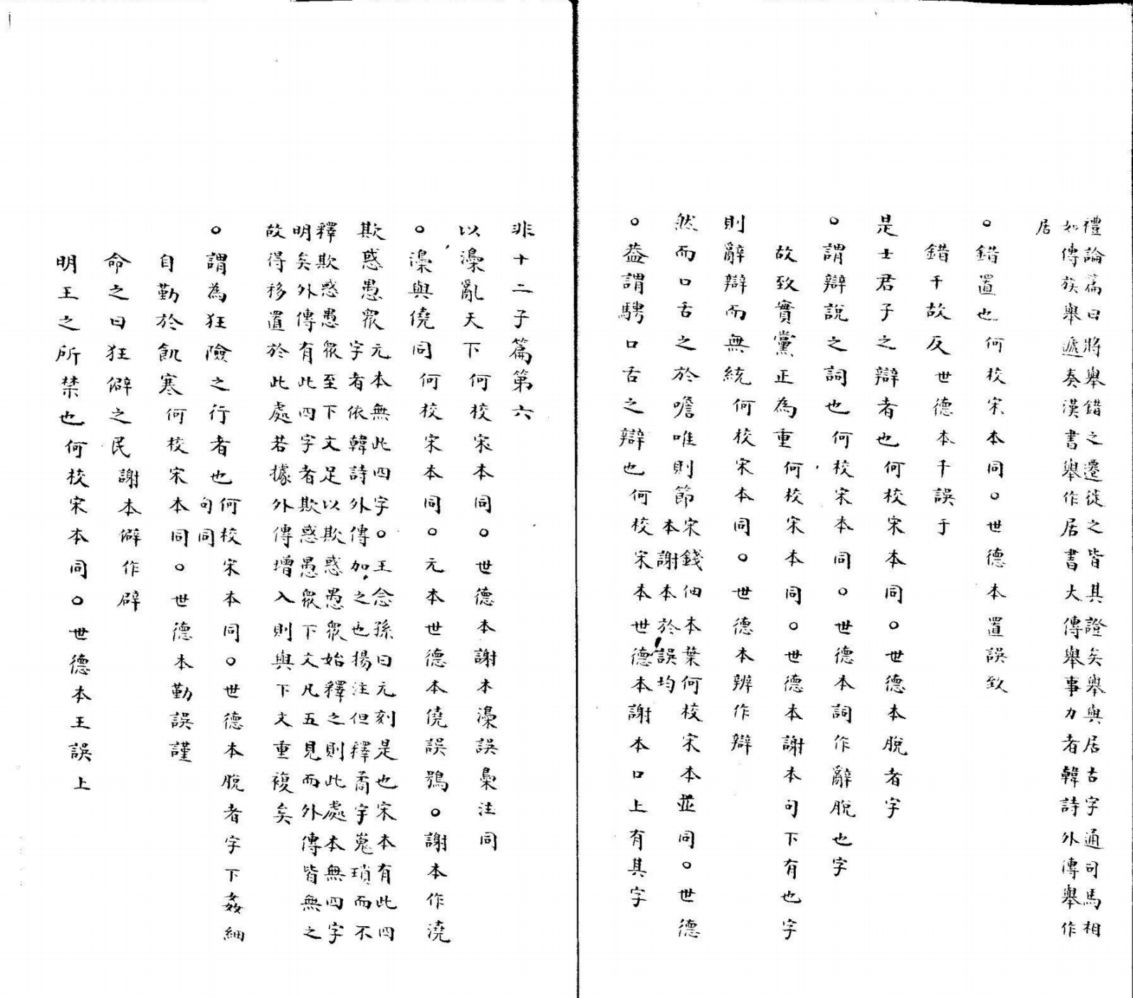 禮論篇曰將舉錯之遷徙之皆其證矣舉與居古字通司馬相
如傳族舉遞奏漢書舉作居書大傳舉事力者韓詩外傳舉作
居
○錯置也何校宋本同○世德本置誤致
錯千故反世德本千誤于
是士君子之辯者也何校宋本同○世德本脫者字
○謂辯說之詞也何校宋本同○世德本詞作辭脫也字
故致實黨正為重何校宋本同○世德本謝本句下有也字
則辭辯而無統何校宋本同○世德本辨作辯
然而口舌之於噡唯則節宋錢佃本葉何校宋本並同○世德
本謝本於誤均
○益謂騁口舌之辯也何校宋本世德本謝本口上有其字
非十二子篇第六
以澆亂天下何校宋本同○世德本謝本澆誤梟注同
○澆與僥同何校宋本同○元本世德本僥誤鴞○謝本作澆
欺惑愚眾元本無此四字○王念孫曰元刻是也宋本有此四
字者依韓詩外傳加之也揚注但釋矞字嵬瑣而不
釋欺惑愚眾至下文足以欺惑愚眾始釋之則此處本無四字
明矣外傳有此四字者欺惑愚眾下文凡五見而外傳皆無之
故得移置於此處若據外傳增入則與下文重複矣
○謂為狂險之行者也何校宋本同○世德本脫者字下姦細
句同
自勤於飢寒何校宋本同○世德本勤誤謹
命之曰狂僻之民謝本僻作辟
明王之所禁也何校宋本同○世德本王誤上